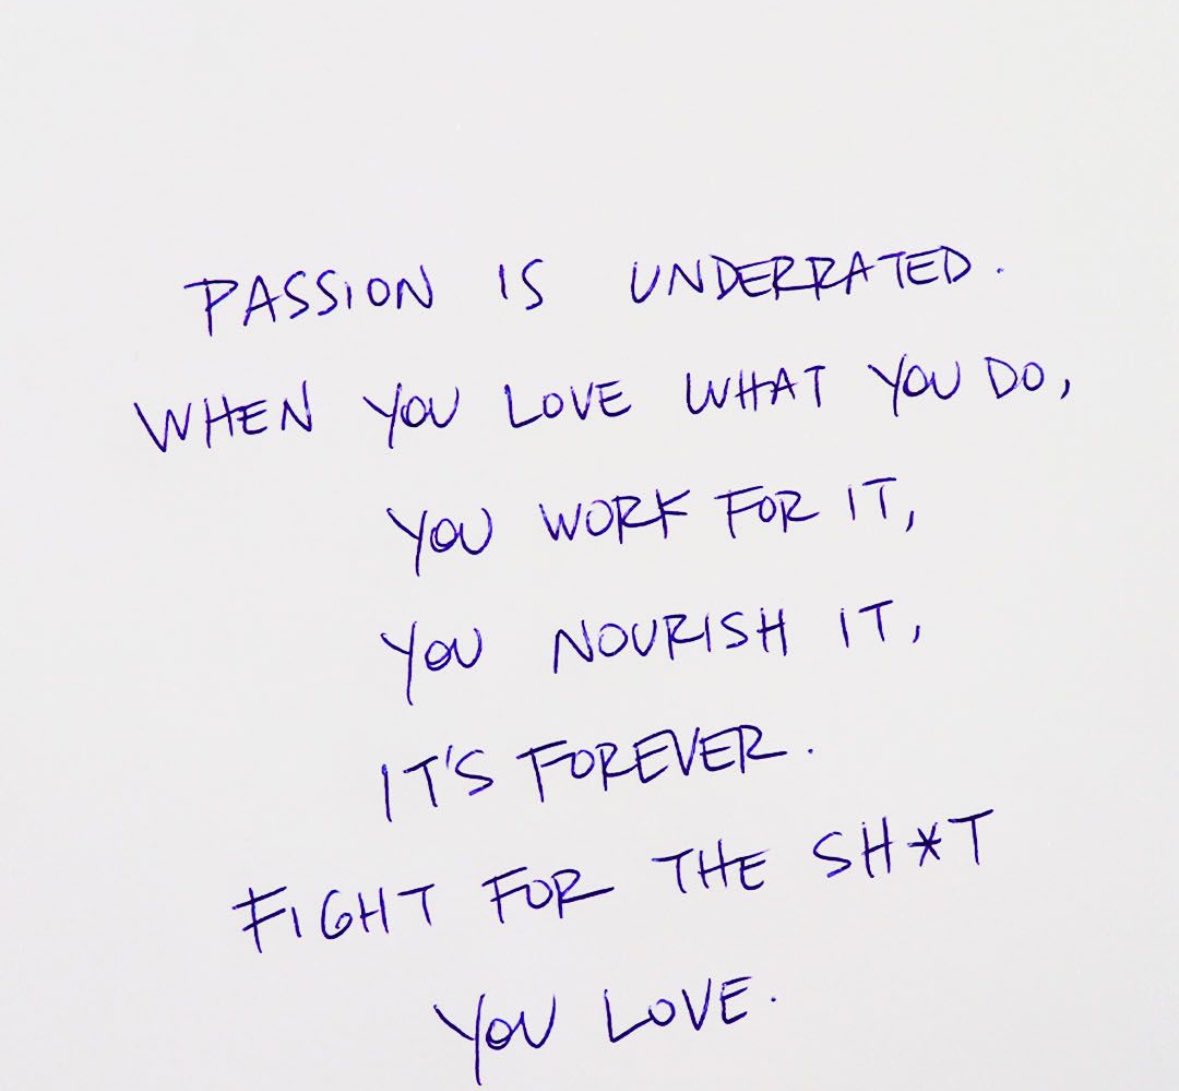 PASSION IS UNDERRATED.
WHEN YOU LOVE WHAT YOU DO,
YOU WORK FOR IT,
YOU NOURISH IT,
IT'S FOREVER.
FIGHT FOR THE SH*T
YOU LOVE.